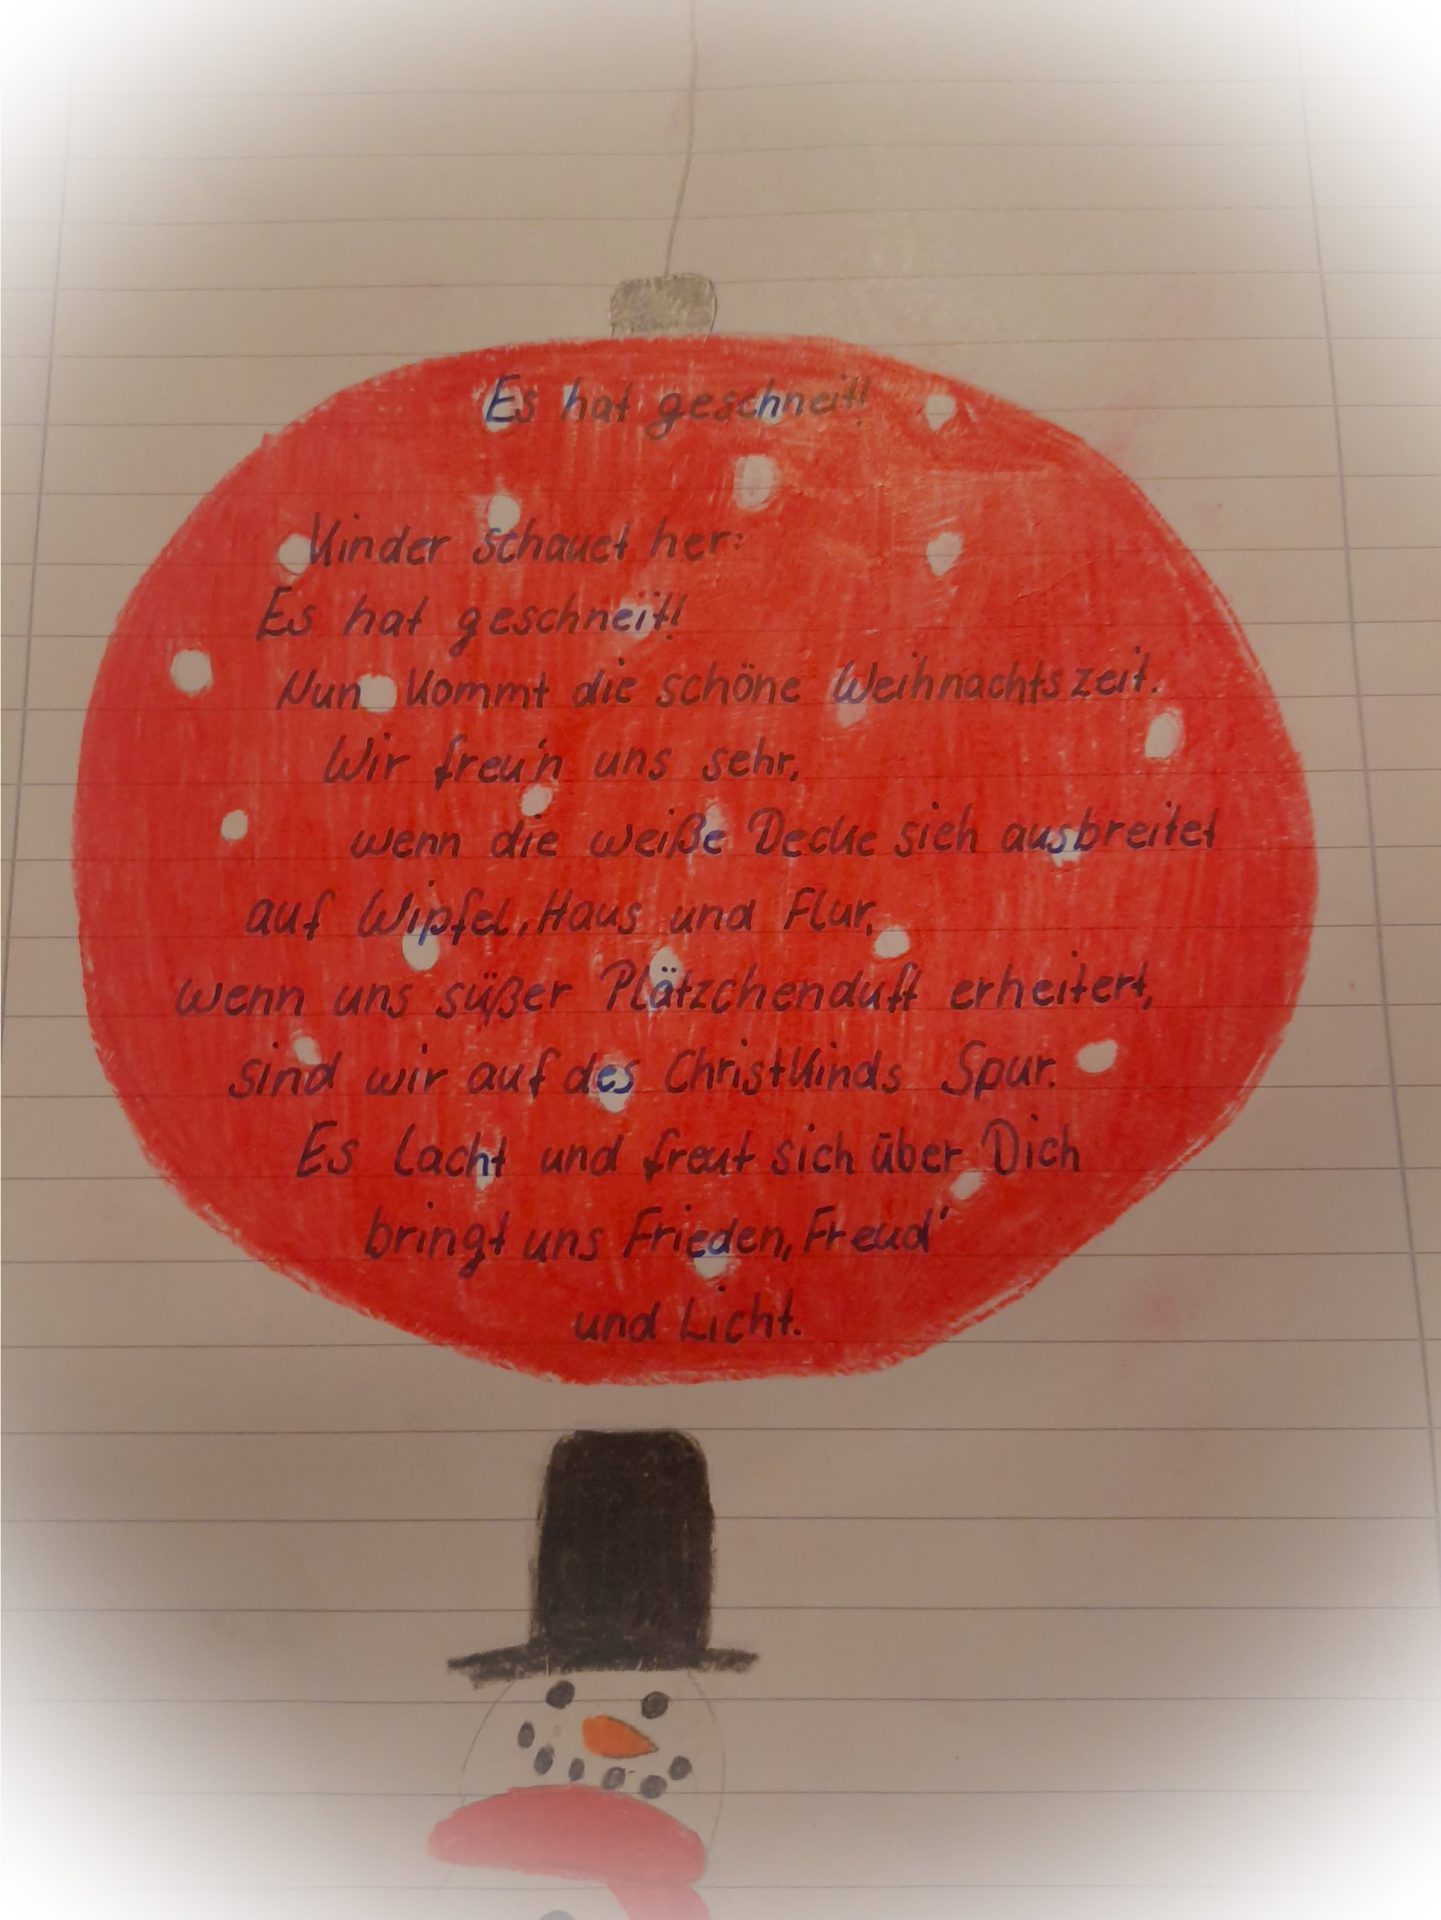 Es hat geschneit!
Kinder schauet her:
Es hat geschneit!
Nun kommt die schöne Weihnachtszeit.
Wir freu'n uns sehr,
wenn die weiße Decke sich ausbreitet
auf Wipfel, Haus und Flur,
wenn uns süßer Plätzchenduft erheitert,
sind wir auf des Christkinds Spur.
Es lacht und freut sich über Dich
bringt uns Frieden, Freud'
und Licht.